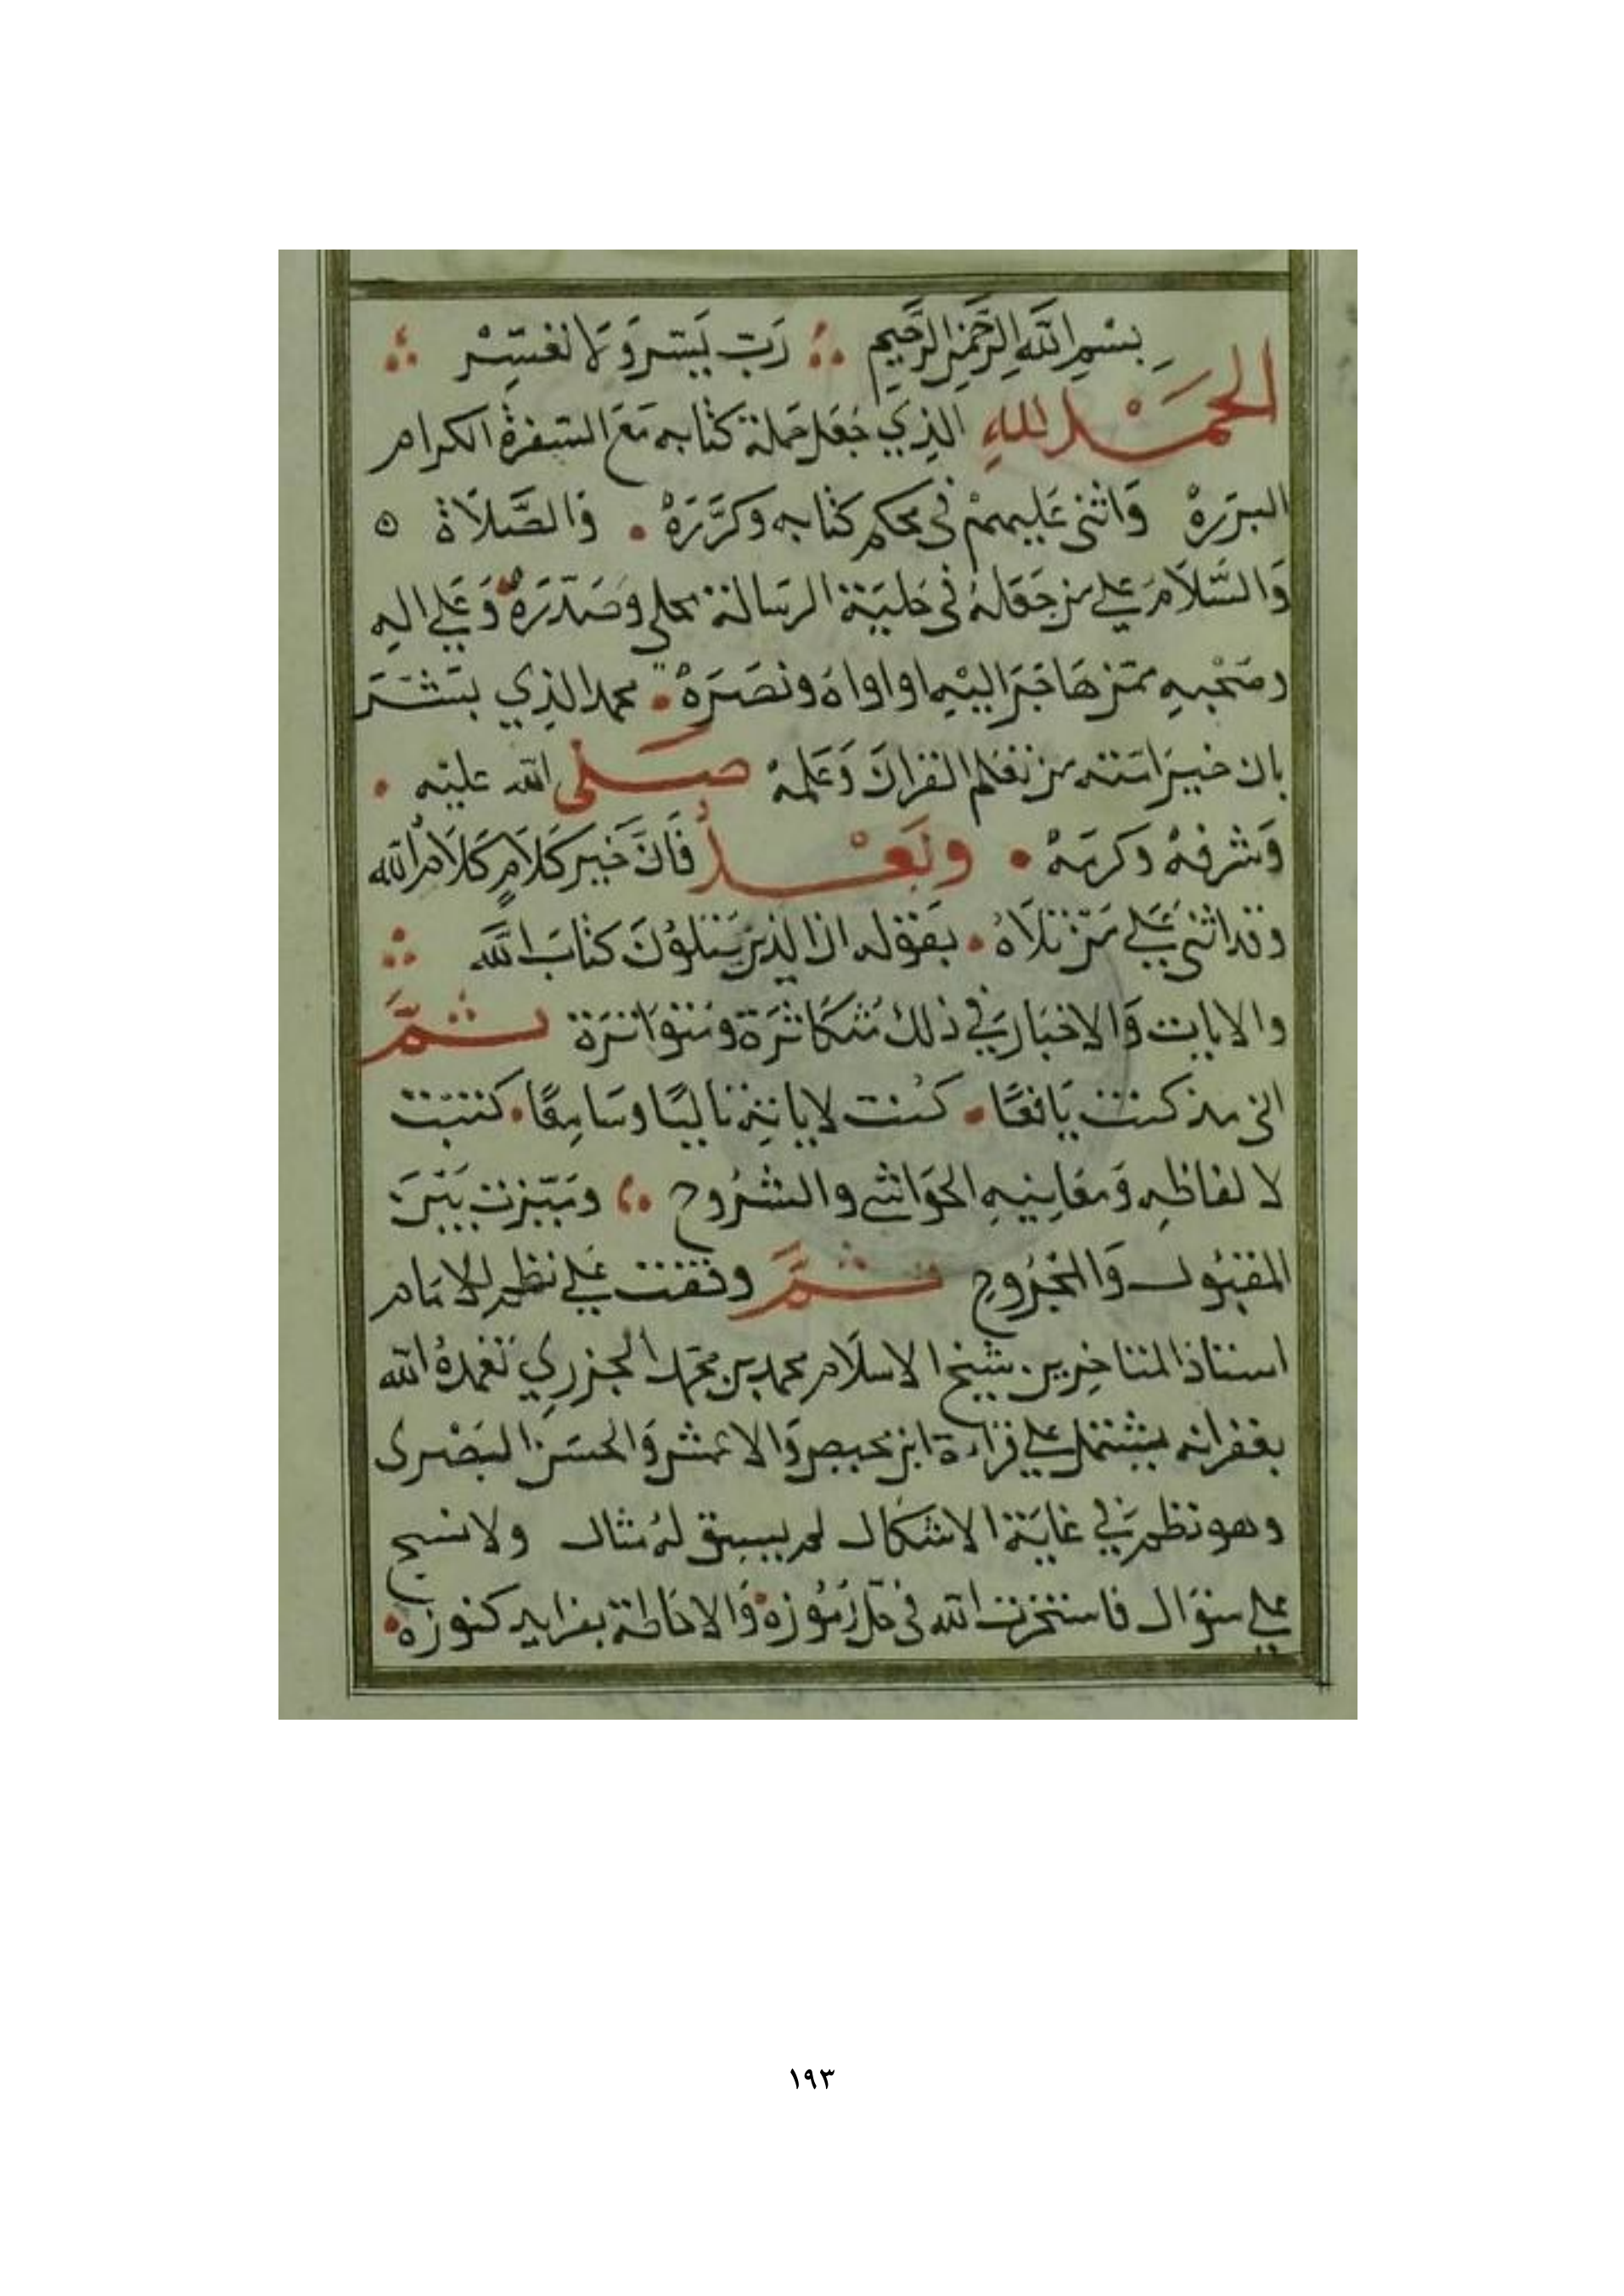 بِسْمِ اللَّهِ الرَّحْمَنِ الرَّحِيمِ رَبِّ يَسِّر وَلَا تعَسِّرْ
الحَمْد لله الذِي جَعَل حَملة كتابه مَعَ السَفرة الكرام
البرَرهْ وَاثنى عَليهمْ في محكم كتابه وكرَّرَهْ . وَالصَّلَاة ه
وَالسَّلَامُ علي من جَعَلهُ في حلبَة الرسَالة محلي وصَدّرَهْ وَعَلي اله
وصَحْبهِ ممّن هَاجَرَ اليْهِ اواواهُ ونصَرَهْ . محمد الذِي بَشرَ
بان خيرَ امّته من تعَلم القرانَ وَعَلمهْ صَلى الله عليْه .
وَشرفهْ وَكرمَهْ . وبَعْدُ فَانَّ خَيرَ كَلَامٍ كَلَامُ الله
وقد اثنى عَلَي مَنْ تَلَاهُ . بقوله ان الذين يَتلوْنَ كتابَ اللَّه
والايات وَالاخبَار في ذلك مُتكَاثرَة ومُتوَاترَة ثمَّ
اني مذ كنت يَافعًا . كنت لاياته تاليًا وسَامِعًا . كتبت
لالفاظه وَمعَانيهِ الحَوَاشي والشرُوح ومَيّزت بَيْنَ
المقبُول وَالمجْرُوح ثمَّ وقفت عَلي نظم للامَام
استاذ المتاخِرين شيخ الاسلَام محمد بن محمَّد الجزرِي تغمدهُ الله
بغفرانه يشتمل علي قرَاءة ابن محيصن وَالاعمش وَالحسَن البَصْرى
وهو نظم في غايَة الاشكال لم يسبق لهُ مثال ولا نسج
علي منوَال فاستخرت الله في حَلّ رُمُوزه وَالاحَاطة بفرايد كنوزه .
١٩٣